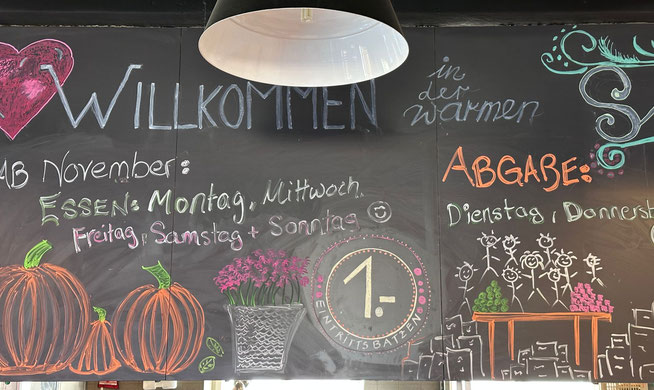 WILLKOMMEN
in
der
Wärmen
AB November:
ESSEN: Montag, Mittwoch,
Freitag, Samstag + Sonntag ☺
1.-
EINTRITTSBATZEN
ABGABE:
Dienstag, Donnerst